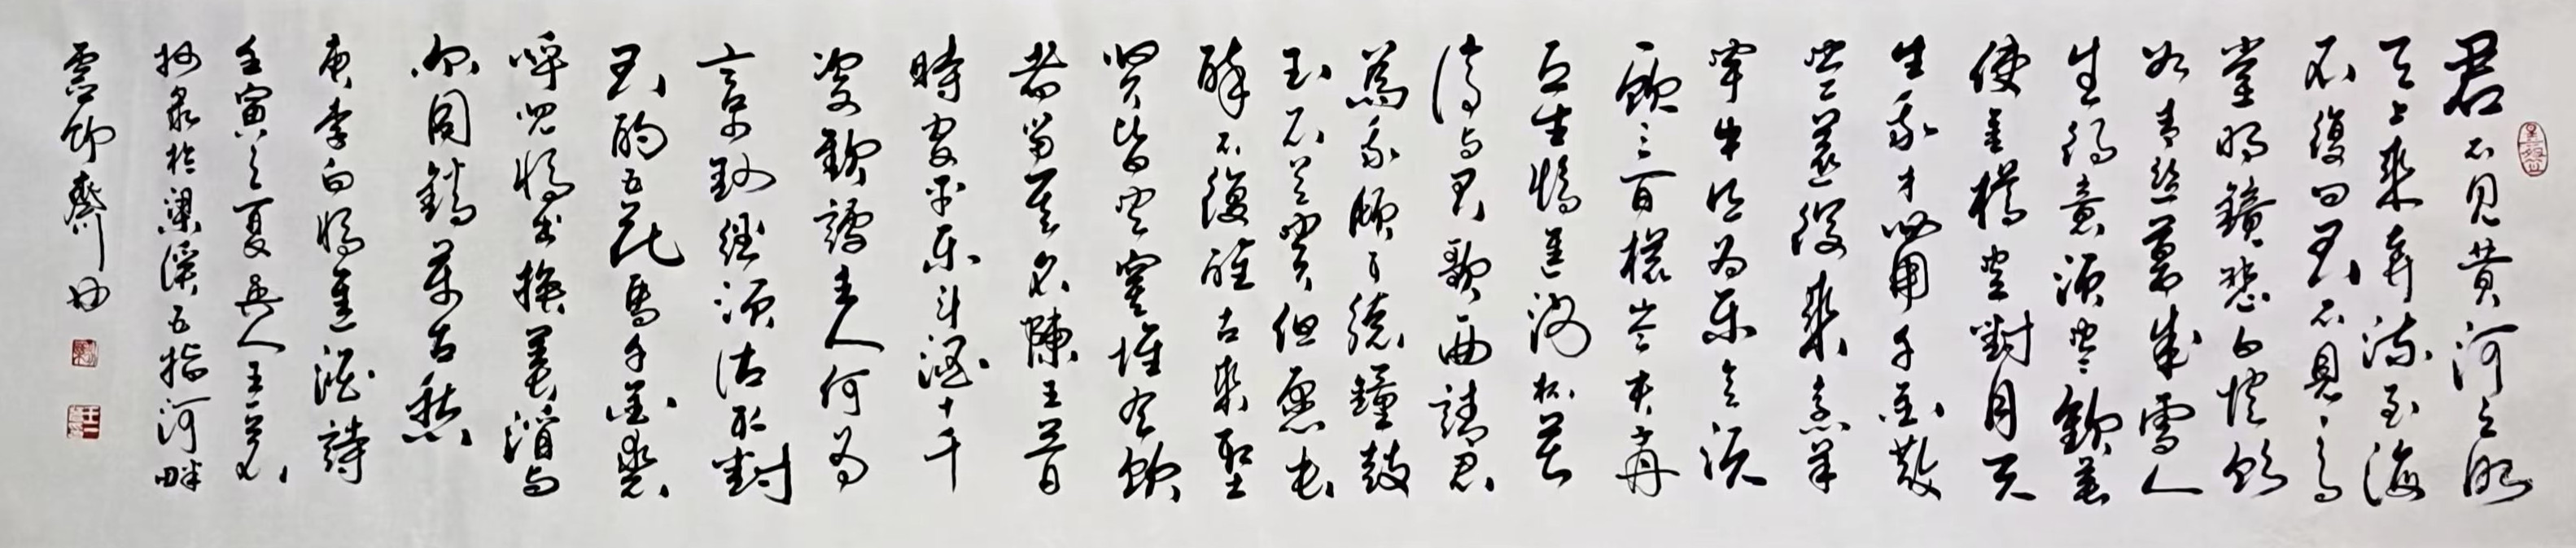 君不見黃河之水
天上來奔流至海
不復回君不見高
堂明鏡悲白髮朝
如青絲暮成雪人
生得意須盡歡莫
使金樽空對月天
生我才必用千金散
盡還復來烹羊
宰牛且為樂會須
一飲三百杯岑夫丹
丘生將進酒杯莫
停与君歌一曲請君
為我傾耳聽鐘鼓
玉不足貴但願長
醉不復醒古來聖
賢皆寂寞惟有飲
者留其名陳王昔
時宴平樂斗酒十千
恣歡謔主人何為
言少錢徑須沽取對
君酌五花馬千金裘
呼兒將出換美酒与
爾同銷萬古愁
唐李白將進酒詩
壬寅之夏吳人王一
抄录於梁溪五指河畔
齋